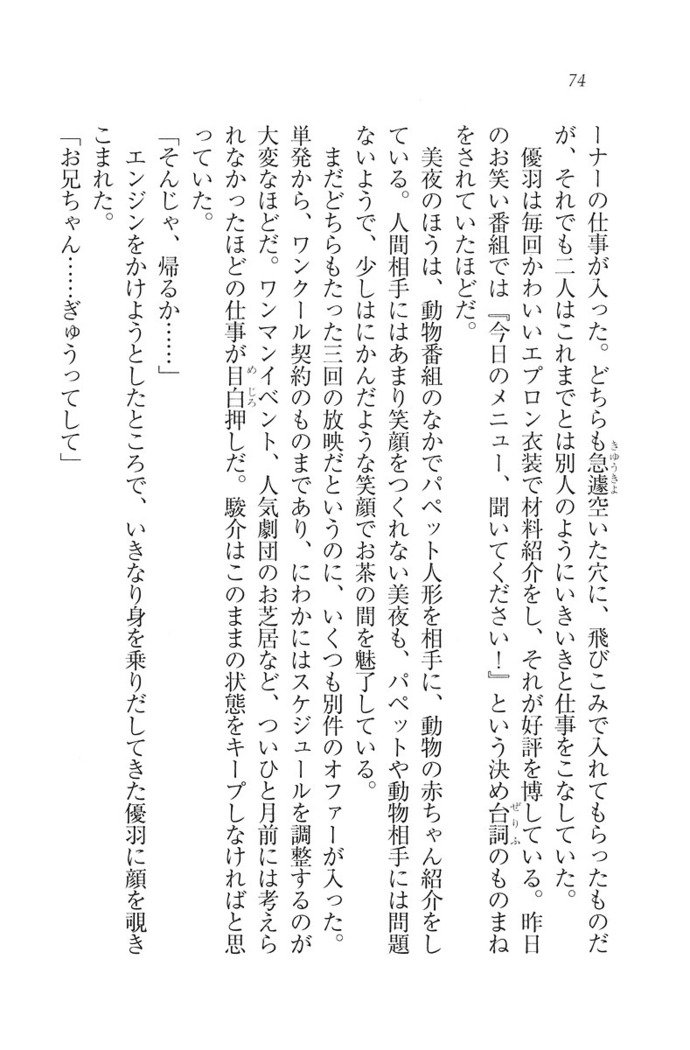 74
ーナーの仕事が入った。どちらも急遽空いた穴に、飛びこみで入れてもらったものだ
が、それでも二人はこれまでとは別人のようにいきいきと仕事をこなしていた。
優羽は毎回かわいいエプロン衣装で材料紹介をし、それが好評を博している。昨日
のお笑い番組では『今日のメニュー、聞いてください！』という決め台詞のものまね
をされていたほどだ。
美夜のほうは、動物番組のなかでパペット人形を相手に、動物の赤ちゃん紹介をし
ている。人間相手にはあまり笑顔をつくれない美夜も、パペットや動物相手には問題
ないようで、少しはにかんだような笑顔でお茶の間を魅了している。
まだどちらもたった三回の放映だというのに、いくつも別件のオファーが入った。
単発から、ワンクール契約のものまであり、にわかにはスケジュールを調整するのが
大変なほどだ。ワンマンイベント、人気劇団のお芝居など、ついひと月前には考えら
れなかったほどの仕事が目白押しだ。駿介はこのままの状態をキープしなければと思
っていた。
「そんじゃ、帰るか……」
エンジンをかけようとしたところで、いきなり身を乗りだしてきた優羽に顔を覗き
こまれた。
「お兄ちゃん……ぎゅうってして」
きゆうきよ
ぜりふ
めじろ